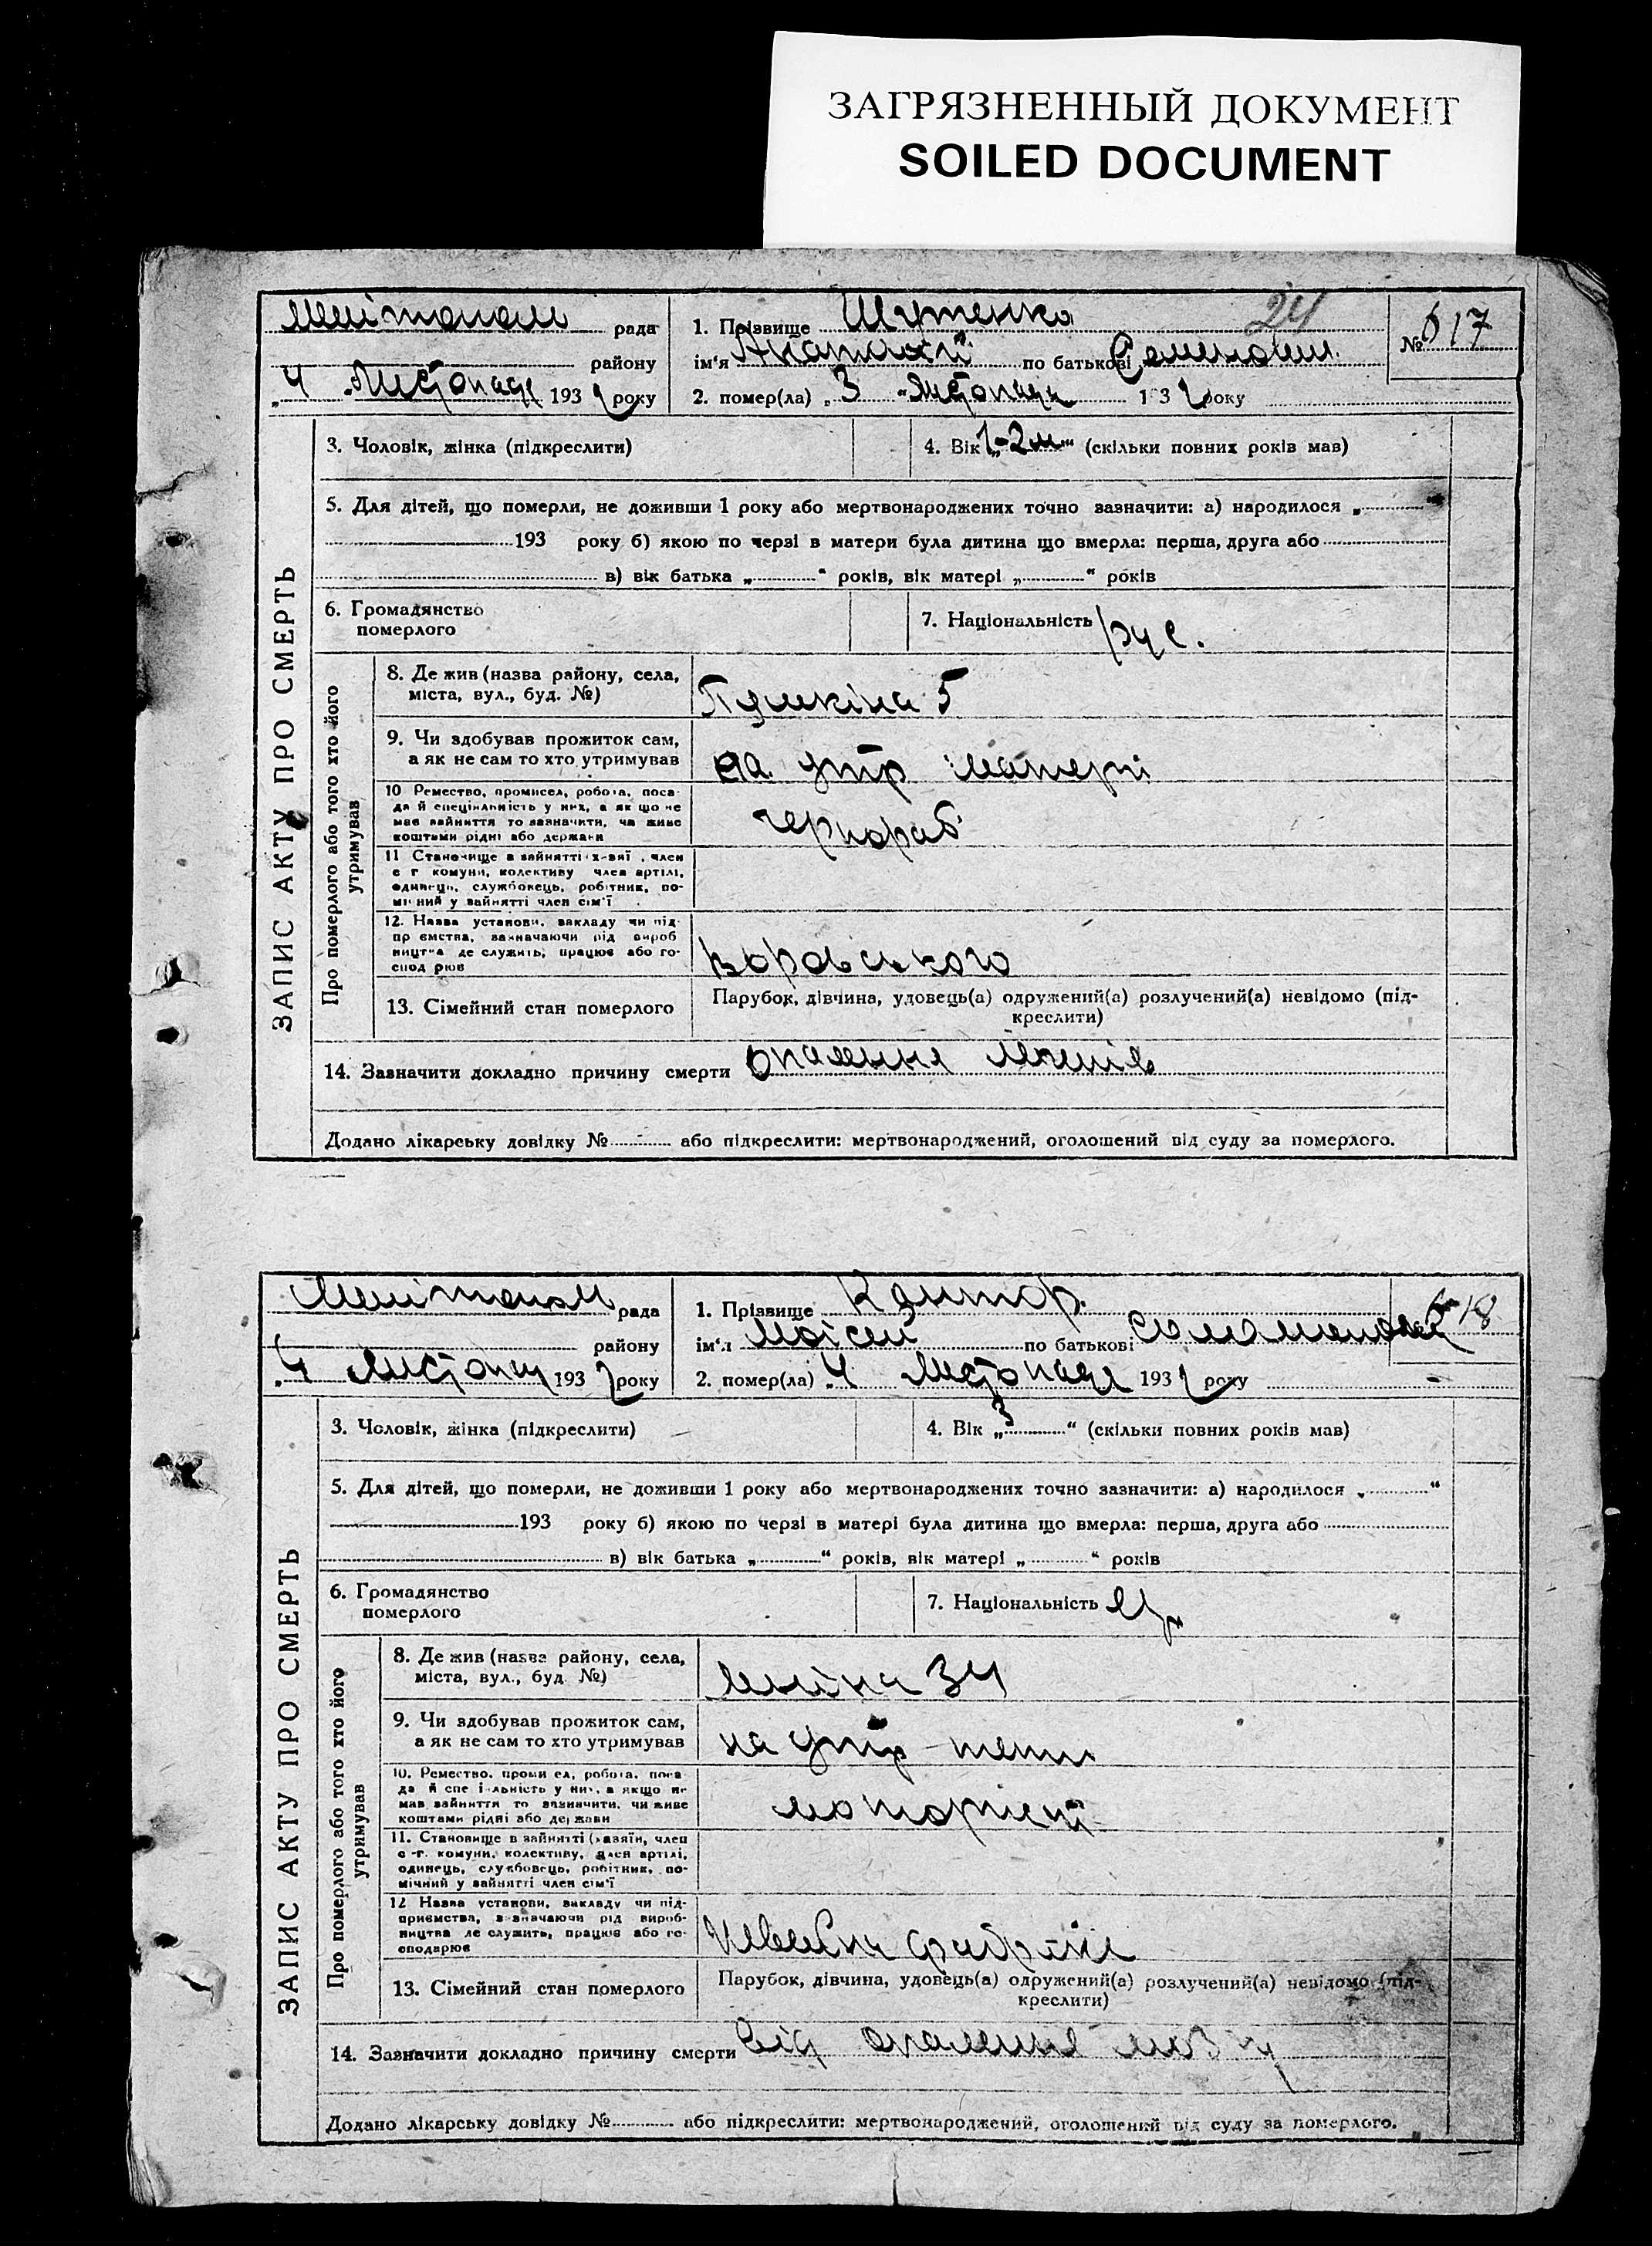 ЗАГРЯЗНЕННЫЙ ДОКУМЕНТ
SOILED DOCUMENT
24
рада
1. Прізвище Шутенко
№ 617
району
ім'я Анатолій по батькові
„4 Листопада 1932 року
2. помер(ла) „3 Листопада 1932 року
3. Чоловік, жінка (підкреслити)
4. Вік 1-2м (скільки повних років мав)
5. Для дітей, що померли, не доживши 1 року або мертвонароджених точно зазначити: а) народилося „
193 року б) якою по черзі в матери була дитина що вмерла: перша, друга або
в) вік батька „ “ років, вік матері „ “ років
6. Громадянство
померлого
7. Національність рус.
ЗАПИС АКТУ ПРО СМЕРТЬ
Про померлого або того хто його
утримував
8. Де жив (назва району, села,
міста, вул., буд. №)
Пушкіна 5
9. Чи здобував прожиток сам,
а як не сам то хто утримував
на утр матері
10 Ремество, промисел, робота, поса-
да й спеціяльність у них, а як що не
має зайняття то зазначити, чи живе
коштами рідні або держави
чернораб
11 Становище в зайнятті член
с г комуни, колективу член артілі,
одинець, службовець, робітник, по-
мічний у зайнятті член сім'ї
12. Назва установи, закладу чи під-
приємства, зазначаючи рід вироб
ництва де служить, працює або го-
сподарює
Воровського
13. Сімейний стан померлого
Парубок, дівчина, удовець(а) одружений(а) розлучений(а) невідомо (під-
креслити)
14. Зазначити докладно причину смерти Опалення легенів
Додано лікарську довідку № або підкреслити: мертвонароджений, оголошений від суду за померлого.
рада
1. Прізвище Кантор.
618
району
ім'я Мойсей по батькові
„4 Листопад 1932 року
2. помер(ла) „4 Листопада 1932 року
3. Чоловік, жінка (підкреслити)
4. Вік „3“ (скільки повних років мав)
5. Для дітей, що померли, не доживши 1 року або мертвонароджених точно зазначити: а) народилося „ “
193 року б) якою по черзі в матері була дитина що вмерла: перша, друга або
в) вік батька „ “ років, вік матері „ “ років
6. Громадянство
померлого
7. Національність
ЗАПИС АКТУ ПРО СМЕРТЬ
Про померлого або того хто його
утримував
8. Де жив (назва району, села,
міста, вул., буд. №)
Леніна 34
9. Чи здобував прожиток сам,
а як не сам то хто утримував
на утр
10. Ремество, промисел, робота, поса-
да й спеціяльність у них, а якщо не
мав зайняття то зазначити, чи живе
коштами рідні або держави
11. Становище в зайнятті (хазяїн, член
с-г. комуни, колективу, член артілі,
одинець, службовець, робітник, по-
мічний у зайнятті член сім'ї
12 Назва установи, закладу чи під-
приємства, зазначаючи рід вироб-
ництва де служить, працює або го-
сподарює
13. Сімейний стан померлого
Парубок, дівчина, удовець(а) одружений(а) розлучений(а) невідомо (під-
креслити)
14. Зазначити докладно причину смерти Від опалення мозку
Додано лікарську довідку № або підкреслити: мертвонароджений, оголошений від суду за померлого.